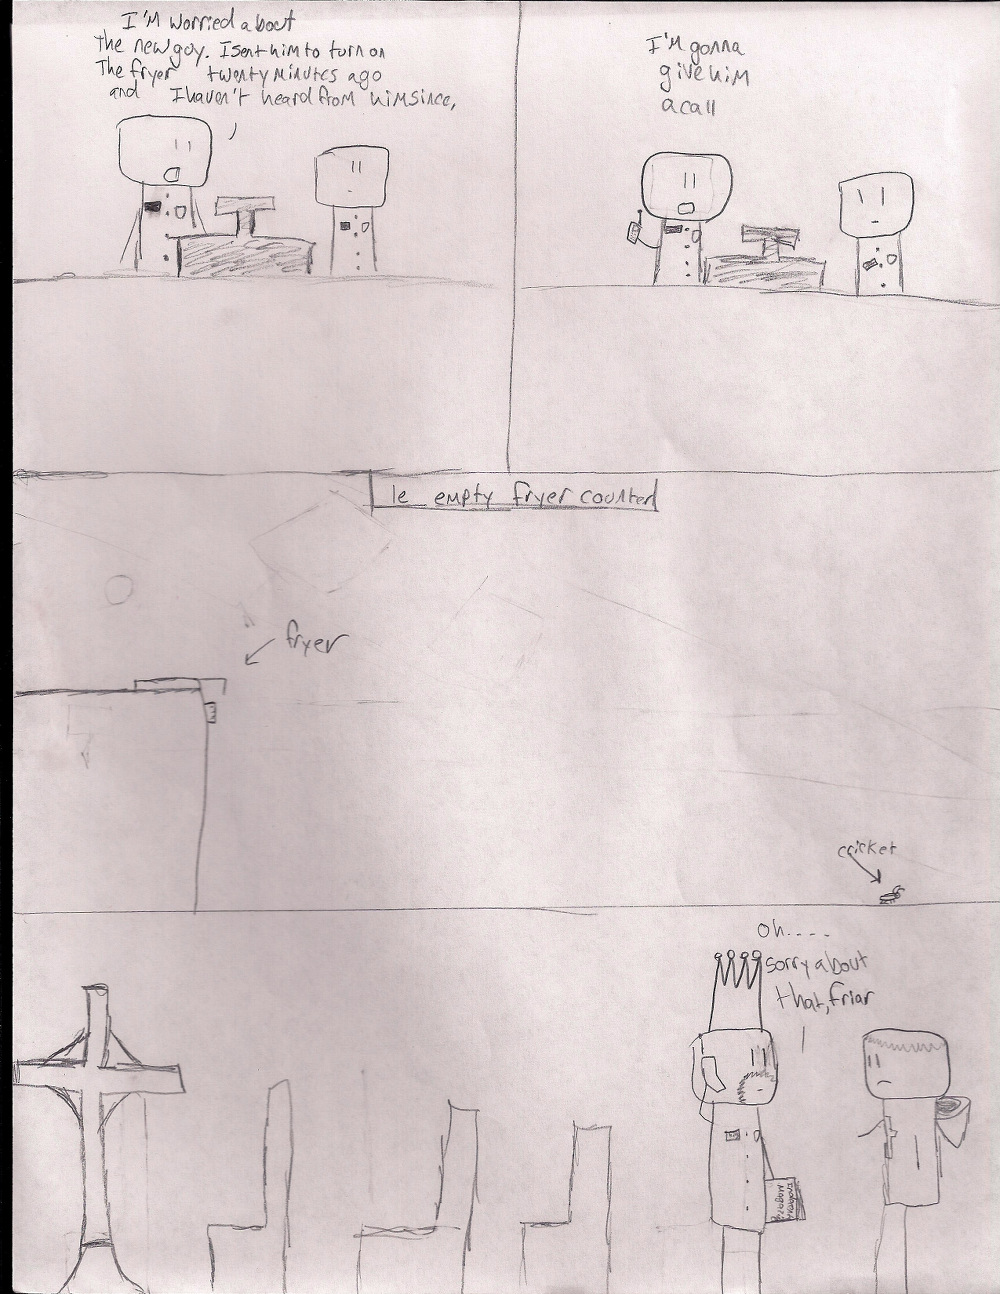 I'M worried about
the new guy. I sent him to turn on
The fryer twenty minutes ago
and I haven't heard from him since,
I'M gonna
give him
a call
le empty fryer counter
fryer
cricket
oh....
sorry about
that, friar